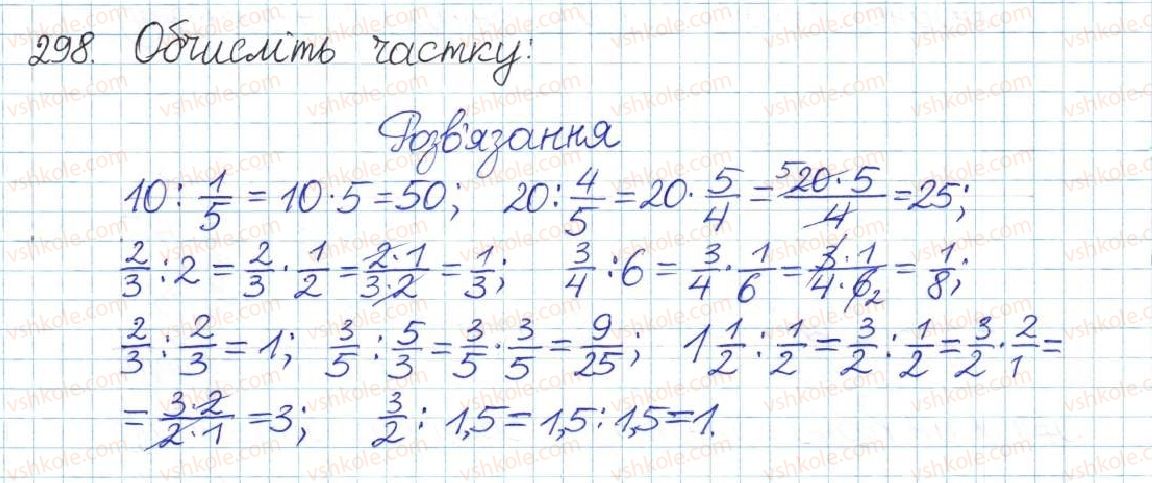 298. Обчисліть частку:
Розв'язання
10 : 1/5 = 10 · 5 = 50; 20 : 4/5 = 20 · 5/4 = 5 20 · 5/4 = 25;
2/3 : 2 = 2/3 · 1/2 = 2 · 1/3 · 2 = 1/3; 3/4 : 6 = 3/4 · 1/6 = 3 · 1/4 · 6 2 = 1/8;
2/3 : 2/3 = 1; 3/5 : 5/3 = 3/5 · 3/5 = 9/25; 1 1/2 : 1/2 = 3/2 : 1/2 = 3/2 · 2/1 =
= 3 · 2/2 · 1 = 3; 3/2 : 1,5 = 1,5 : 1,5 = 1.
vshkole.com